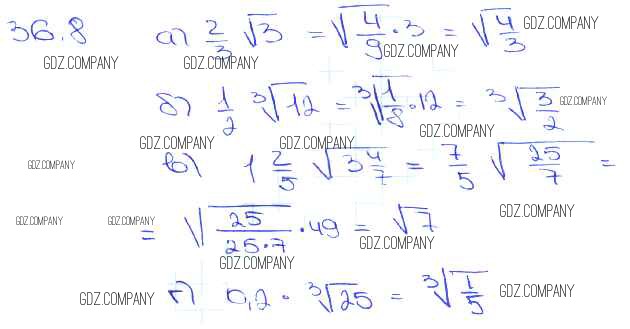 36.8 а) 2/3 √3 = √(4/9 · 3) = √(4/3) GDZ.COMPANY
GDZ.COMPANY GDZ.COMPANY GDZ.COMPANY
б) 1/2 ³√12 = ³√(1/8 · 12) = ³√(3/2) GDZ.COMPANY
GDZ.COMPANY GDZ.COMPANY GDZ.COMPANY
GDZ.COMPANY в) 1 2/5 √(3 4/7) = 7/5 √(25/7) =
GDZ.COMPANY GDZ.COMPANY GDZ.COMPANY
= √(25/(25·7) · 49) = √7
GDZ.COMPANY GDZ.COMPANY
GDZ.COMPANY г) 0,2 · ³√25 = ³√(1/5) GDZ.COMPANY